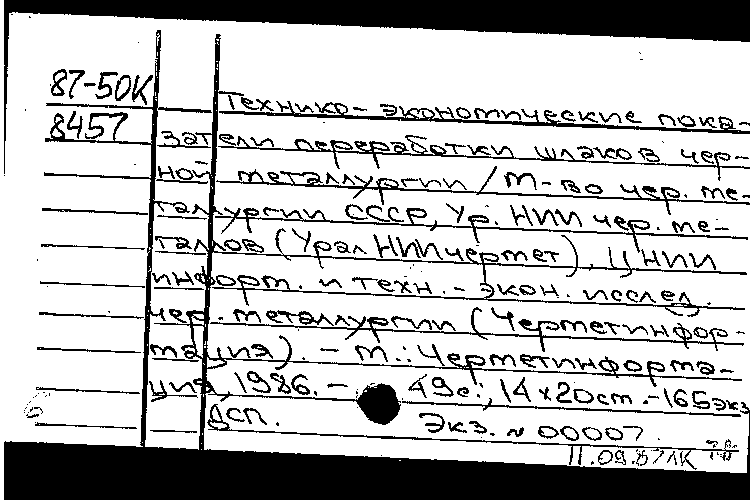 87-50К
8457
Технико-экономические пока-
затели переработки шлаков чер-
ной металлургии / М-во чер. ме-
таллургии СССР, Ур. НИИ чер. ме-
таллов (УралНИИчермет), ЦНИИ
информ. и техн.-экон. исслед.
чер. металлургии (Черметинфор-
мация). - М.: Черметинформа-
ция, 1986. - 49с.; 14х20см. - 165экз
ДСП. Экз. N 00007.
11.09.87ЛК